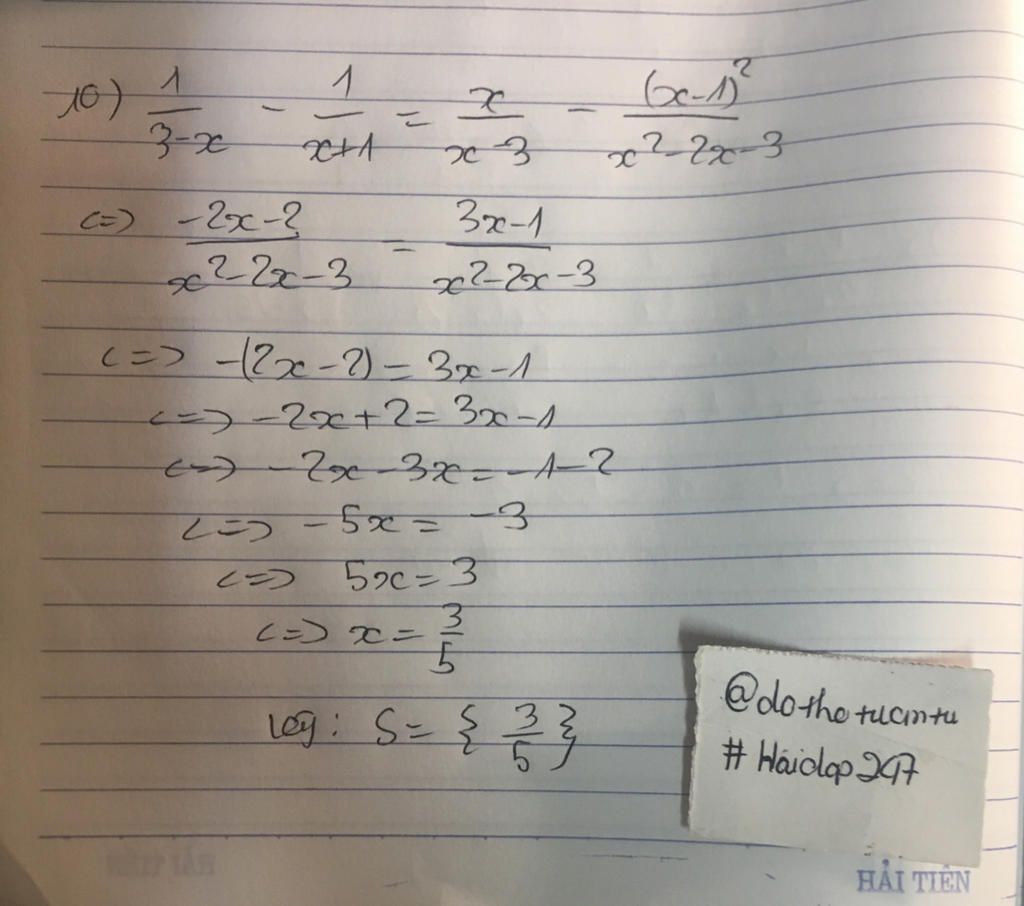 10) 1/(3-x) - 1/(x+1) = x/(x-3) - (x-1)²/(x²-2x-3)
<=> (-2x-2)/(x²-2x-3) = (3x-1)/(x²-2x-3)
<=> -(2x-2) = 3x-1
<=> -2x+2 = 3x-1
<=> -2x-3x = -1-2
<=> -5x = -3
<=> 5x = 3
<=> x = 3/5
S = { 3/5 }
@dothotucintu
# Hỏidap247
HẢI TIẾN